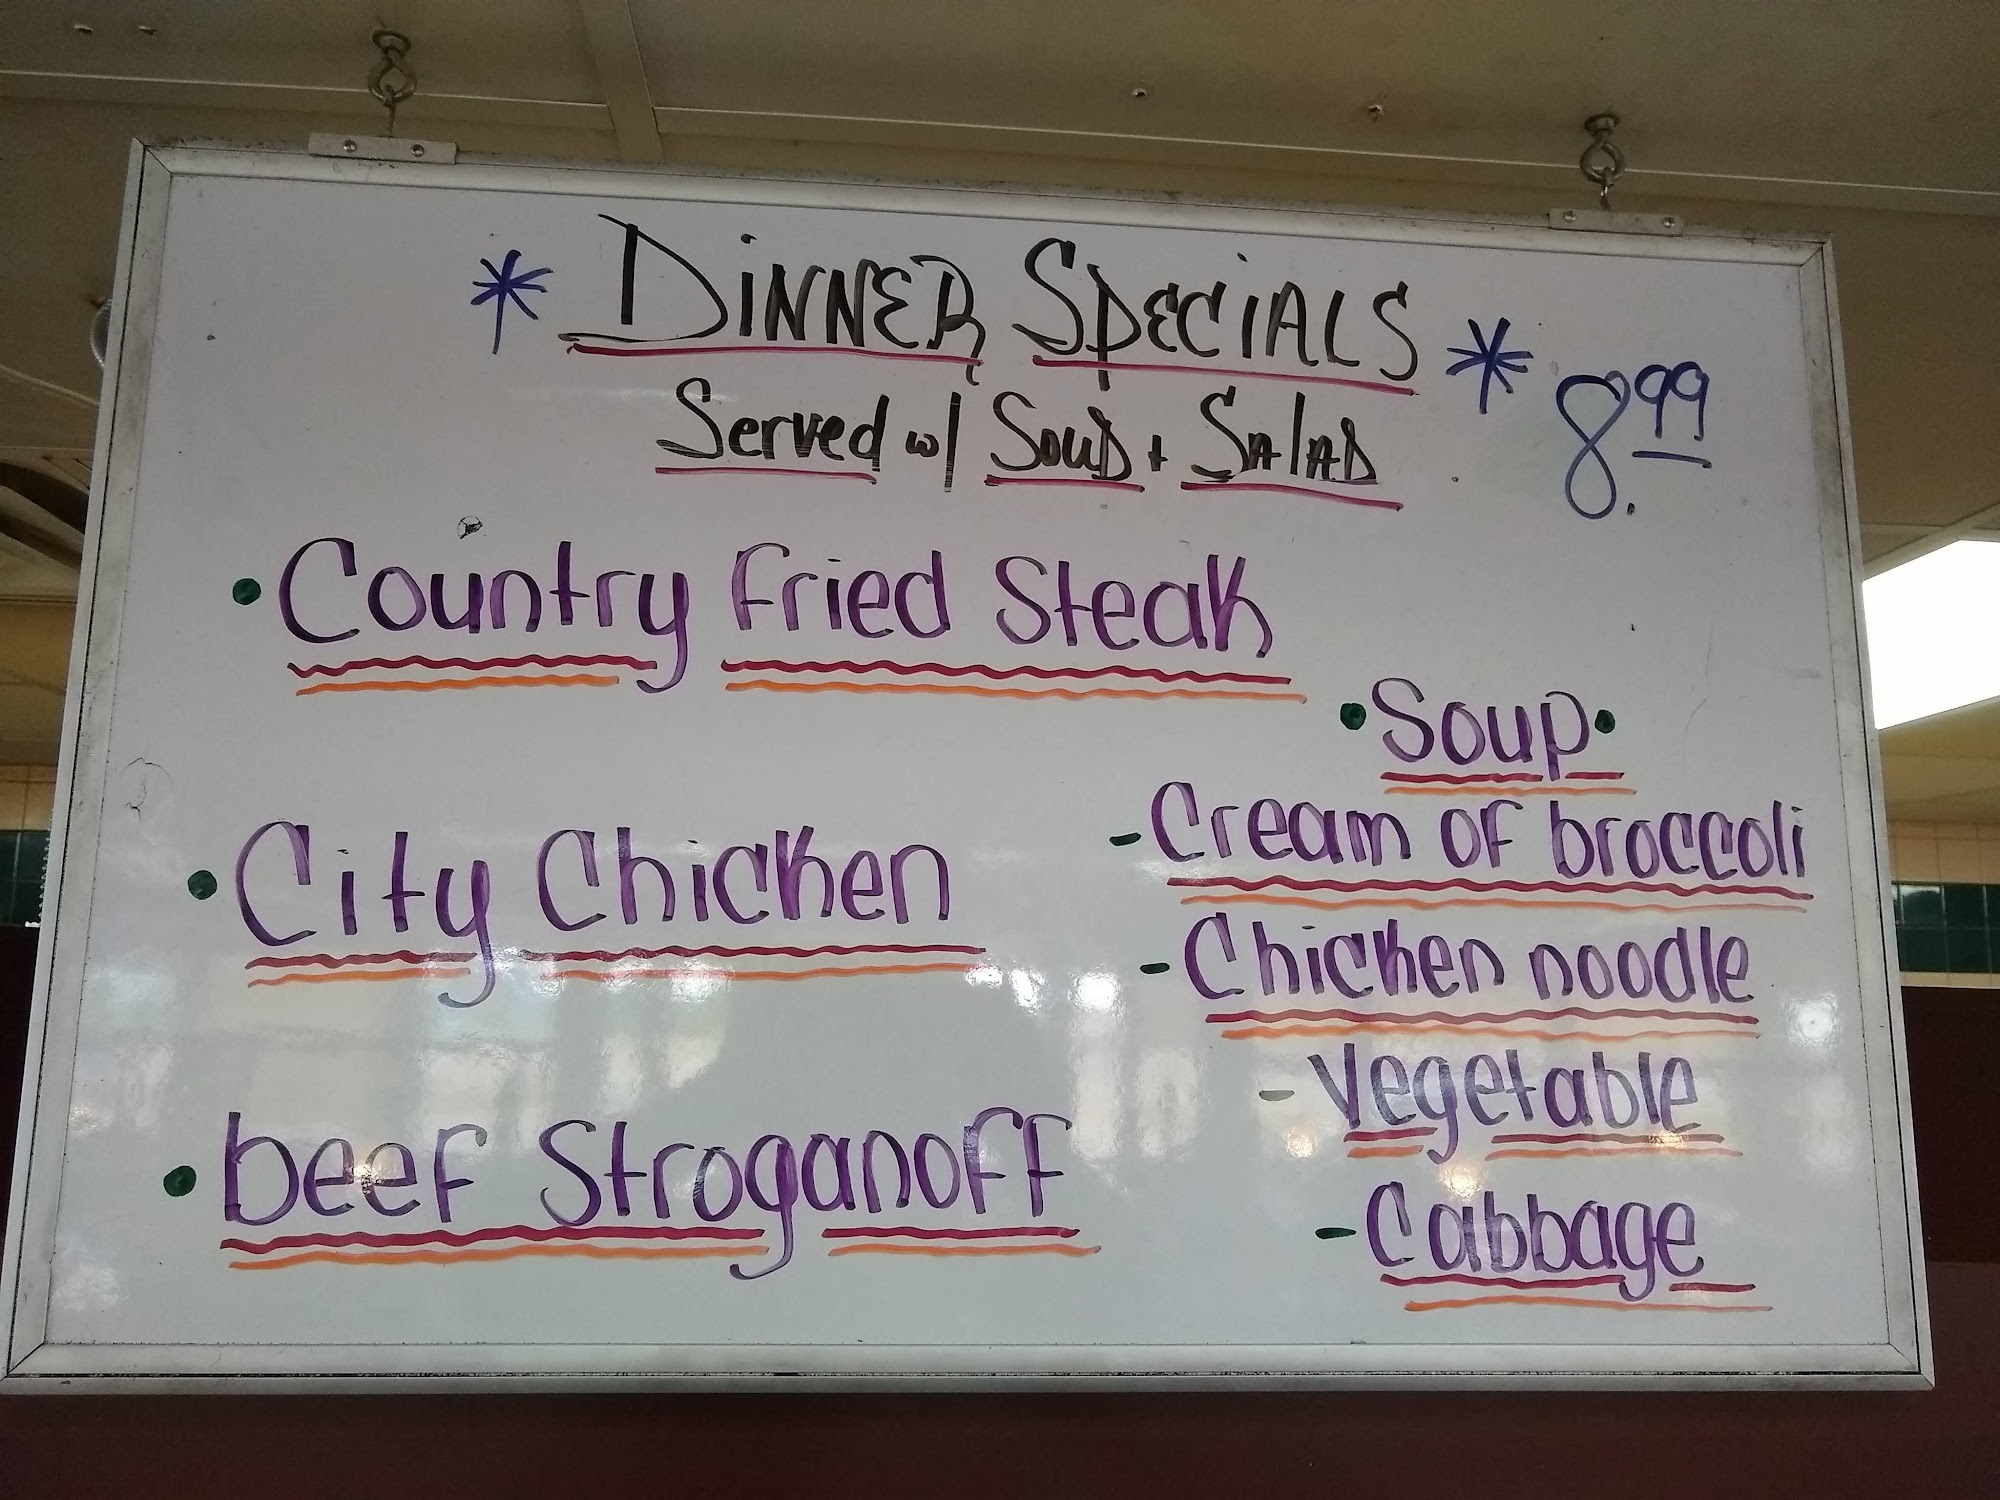 * DINNER SPECIALS * 8.99
Served w/ Soup + SALAD
• Country Fried Steak
• City Chicken
• beef Stroganoff
• Soup •
- Cream of broccoli
- Chicken noodle
- Vegetable
- Cabbage